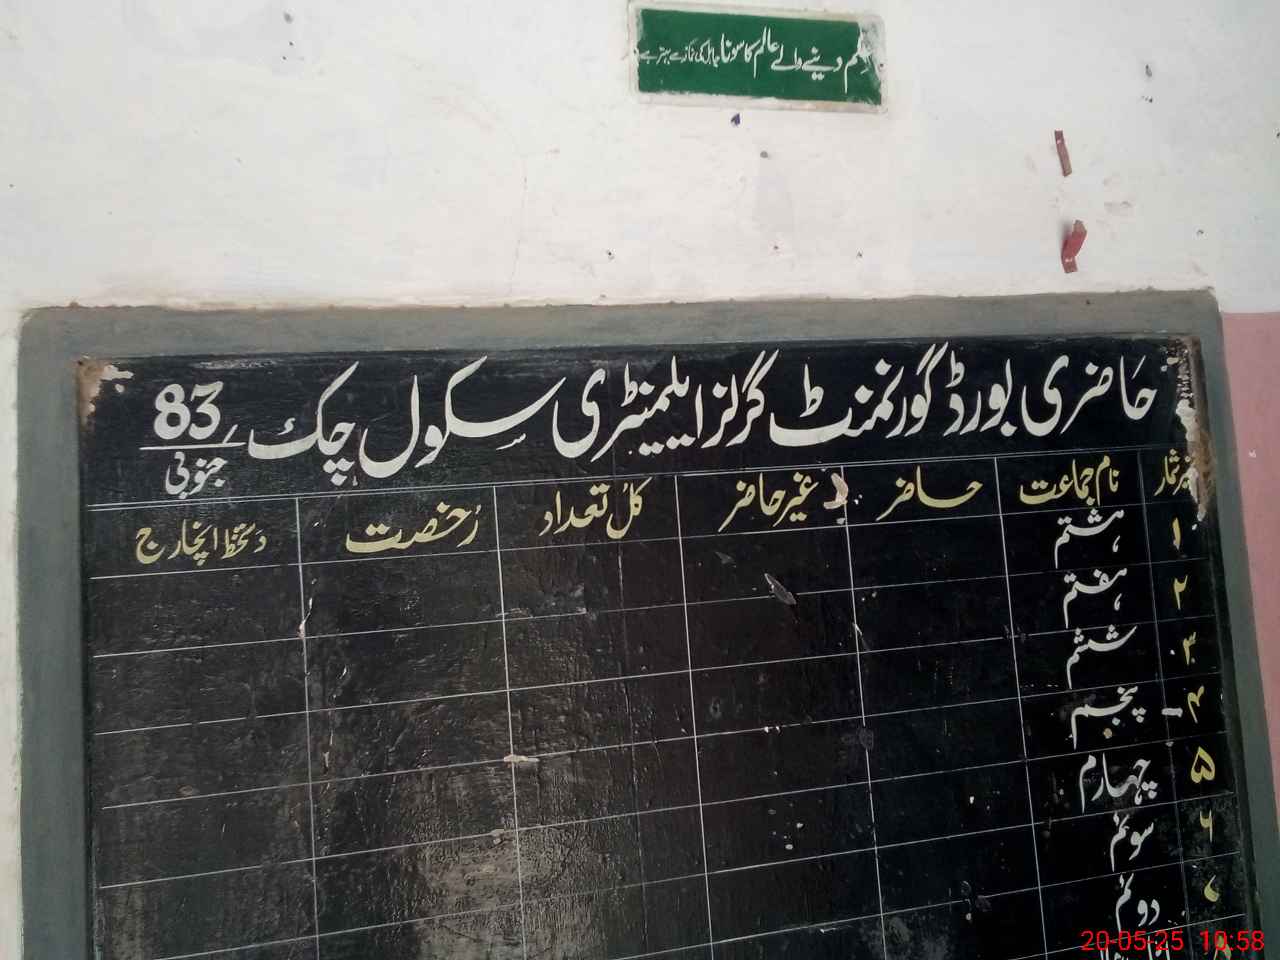 علم دینے والے عالم کا سونا جاہل کی نماز سے بہتر ہے
حاضری بورڈ گورنمنٹ گرلز ایلیمنٹری سکول چک 83 جنوبی
نمبر شمار نام جماعت حاضر غیر حاضر کل تعداد رخصت دستخط انچارج
۱ ہشتم
۲ ہفتم
۳ ششم
۴ پنجم
۵ چہارم
۶ سوئم
دوئم
20-05-25 10:58